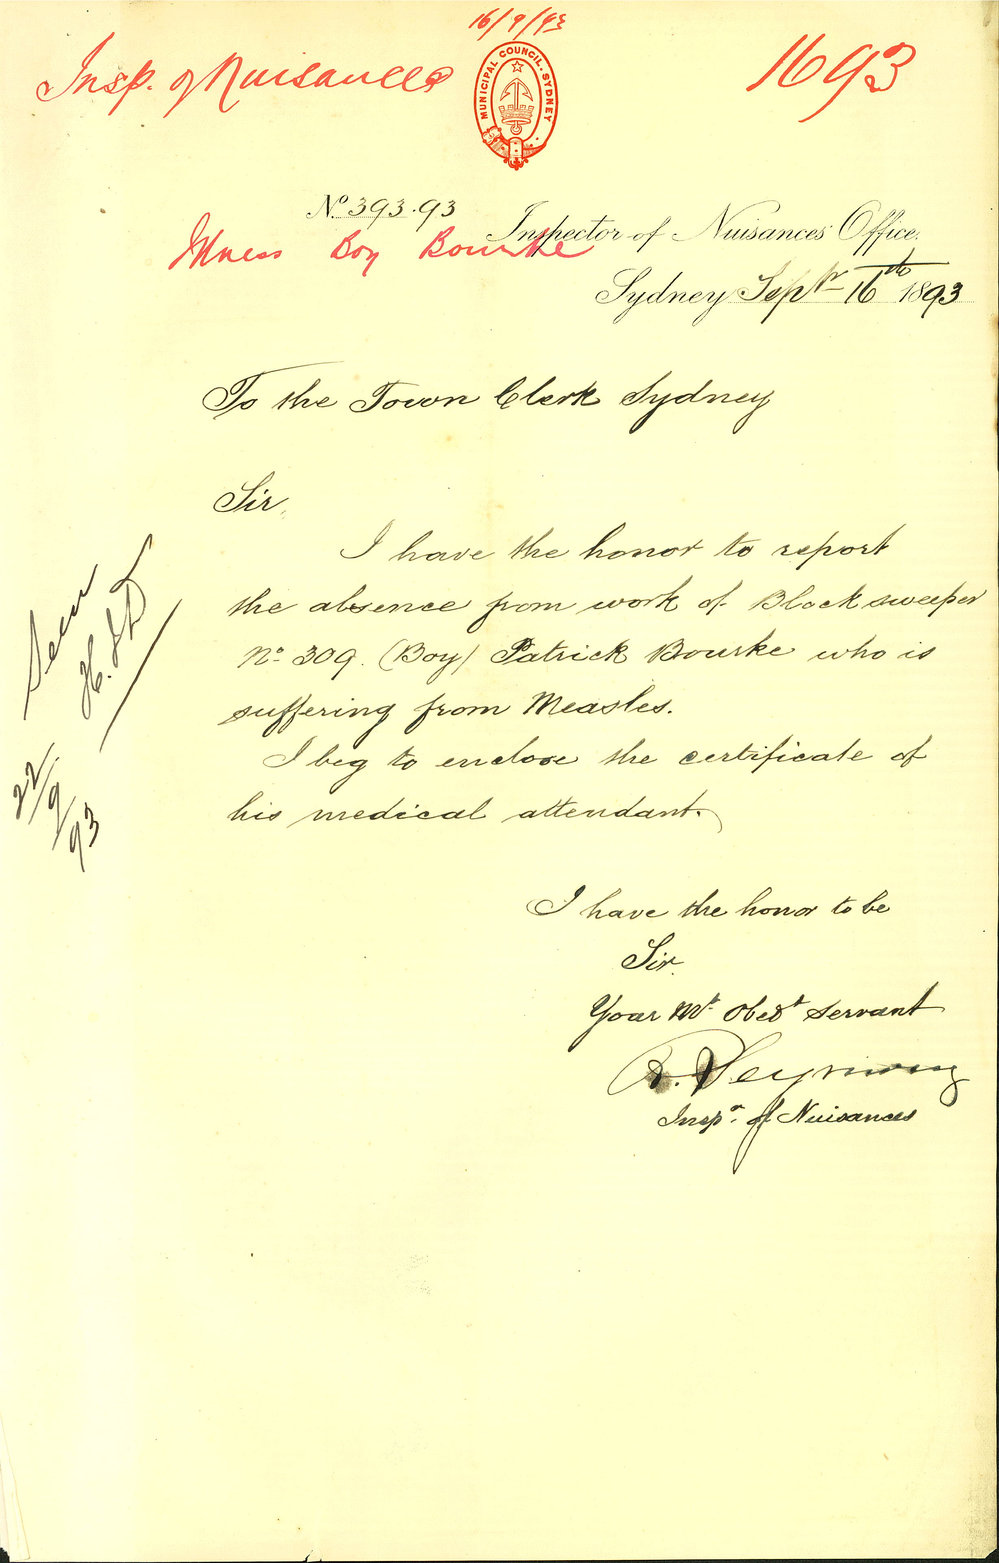 16/9/93
Insp. of Nuisances
MUNICIPAL COUNCIL. SYDNEY
1693
No. 393.93
Inspector of Nuisances Office.
Illness Boy Bourke
Sydney Septr 16th 1893
To the Town Clerk Sydney
Sir,
I have the honor to report
the absence from work of Block sweeper
No. 309. (Boy) Patrick Bourke who is
suffering from Measles.
I beg to enclose the certificate of
his medical attendant.
Seen
22/9/93
I have the honor to be
Sir.
Your Mt. Obedt servant
R. Seymour
Inspr. of Nuisances